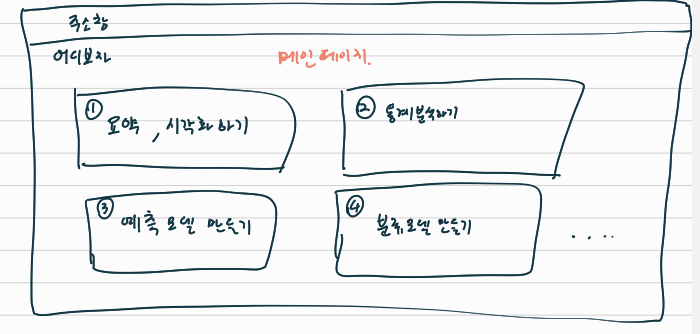 주소창
어디보자
메인페이지.
① 요약, 시각화하기
② 통계분석하기
③ 예측 모델 만들기
④ 분류모델 만들기
....